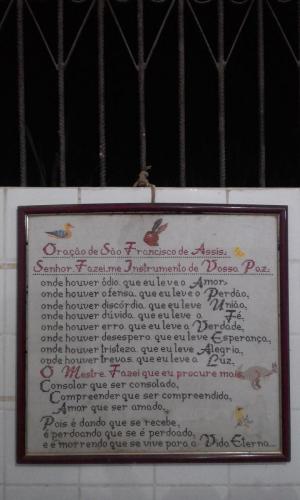 Oração de São Francisco de Assis:
Senhor, Fazei-me Instrumento de Vossa Paz:
onde houver ódio, que eu leve o Amor,
onde houver ofensa, que eu leve o Perdão,
onde houver discórdia, que eu leve a União,
onde houver dúvida, que eu leve a Fé,
onde houver erro, que eu leve a Verdade,
onde houver desespero, que eu leve Esperança,
onde houver tristeza, que eu leve Alegria,
onde houver trevas, que eu leve a Luz.
O Mestre, Fazei que eu procure mais
Consolar que ser consolado,
Compreender que ser compreendido,
Amar que ser amado,
Pois é dando que se recebe,
é perdoando que se é perdoado,
e é morrendo que se vive para a Vida Eterna...